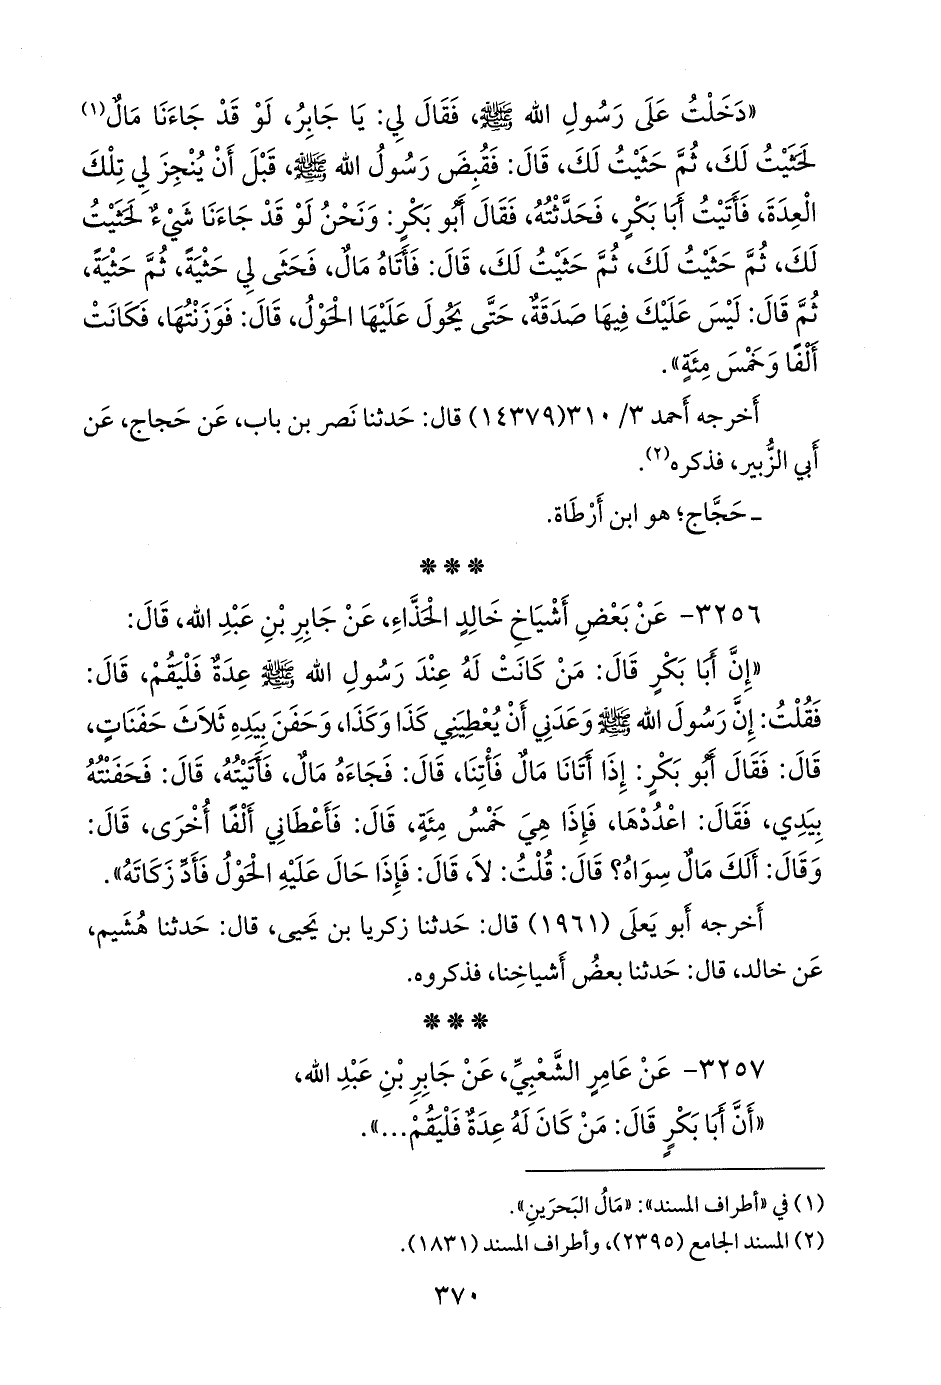 «دَخَلْتُ عَلَى رَسُولِ الله ﷺ، فَقَالَ لِي: يَا جَابِرُ، لَوْ قَدْ جَاءَنَا مَالٌ(١)
لَحَثَيْتُ لَكَ، ثُمَّ حَثَيْتُ لَكَ، قَالَ: فَقُبِضَ رَسُولُ الله ﷺ، قَبْلَ أَنْ يُنْجِزَ لِي تِلْكَ
الْعِدَةَ، فَأَتَيْتُ أَبَا بَكْرٍ، فَحَدَّثْتُهُ، فَقَالَ أَبُو بَكْرٍ: وَنَحْنُ لَوْ قَدْ جَاءَنَا شَيْءٌ لَحَثَيْتُ
لَكَ، ثُمَّ حَثَيْتُ لَكَ، ثُمَّ حَثَيْتُ لَكَ، قَالَ: فَأَتَاهُ مَالٌ، فَحَثَى لِي حَثْيَةً، ثُمَّ حَثْيَةً،
ثُمَّ قَالَ: لَيْسَ عَلَيْكَ فِيهَا صَدَقَةٌ، حَتَّى يَحُولَ عَلَيْهَا الْحَوْلُ، قَالَ: فَوَزَنْتُهَا، فَكَانَتْ
أَلْفًا وَخَمْسَ مِئَةٍ».
أَخرجه أَحمد ٣/ ٣١٠(١٤٣٧٩) قال: حَدثنا نَصر بن باب، عَن حَجاج، عَن
أَبي الزُّبير، فذكره(٢).
ـ حَجَّاج؛ هو ابن أَرْطَاة.
* * *
٣٢٥٦- عَنْ بَعْضِ أَشْيَاخِ خَالِدٍ الْحَذَّاءِ، عَنْ جَابِرِ بْنِ عَبْدِ الله، قَالَ:
«إِنَّ أَبَا بَكْرٍ قَالَ: مَنْ كَانَتْ لَهُ عِنْدَ رَسُولِ الله ﷺ عِدَةٌ فَلْيَقُمْ، قَالَ:
فَقُلْتُ: إِنَّ رَسُولَ الله ﷺ وَعَدَنِي أَنْ يُعْطِيَنِي كَذَا وَكَذَا، وَحَفَنَ بِيَدِهِ ثَلاَثَ حَفَنَاتٍ،
قَالَ: فَقَالَ أَبُو بَكْرٍ: إِذَا أَتَانَا مَالٌ فَأْتِنَا، قَالَ: فَجَاءَهُ مَالٌ، فَأَتَيْتُهُ، قَالَ: فَحَفَنْتُهُ
بِيَدِي، فَقَالَ: اعْدُدْهَا، فَإِذَا هِيَ خَمْسُ مِئَةٍ، قَالَ: فَأَعْطَانِي أَلْفًا أُخْرَى، قَالَ:
وَقَالَ: أَلَكَ مَالٌ سِوَاهُ؟ قَالَ: قُلْتُ: لاَ، قَالَ: فَإِذَا حَالَ عَلَيْهِ الْحَوْلُ فَأَدِّ زَكَاتَهُ».
أَخرجه أَبو يَعلَى (١٩٦١) قال: حَدثنا زكريا بن يَحيى، قال: حَدثنا هُشَيم،
عَن خالد، قال: حَدثنا بعضُ أَشياخِنا، فذكروه.
* * *
٣٢٥٧- عَنْ عَامِرٍ الشَّعْبِيِّ، عَنْ جَابِرِ بْنِ عَبْدِ الله،
«أَنَّ أَبَا بَكْرٍ قَالَ: مَنْ كَانَ لَهُ عِدَةٌ فَلْيَقُمْ...».
(١) في «أطراف المسند»: «مَالُ البَحرَينِ».
(٢) المسند الجامع (٢٣٩٥)، وأطراف المسند (١٨٣١).
٣٧٠